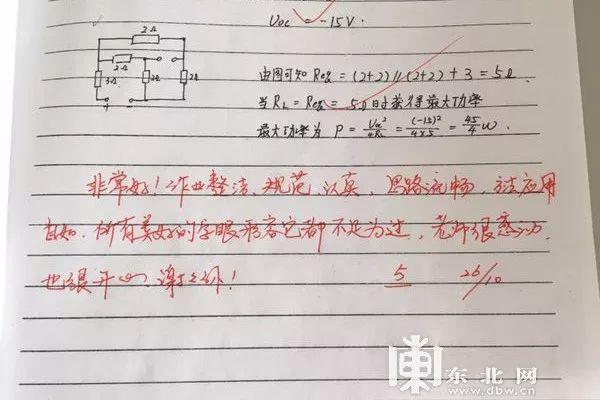 Uoc = -15V.
2Ω
2Ω
3Ω 2Ω 2Ω
由图可知 Req = (2+2)//(2+2) + 3 = 5Ω
当 RL = Req = 5Ω 时获得最大功率
最大功率为 P = Uoc²/4RL = (-15)²/4×5 = 45/4 W.
非常好！作业整洁、规范、认真，思路流畅，方法应用
自如，所有美好的字眼形容它都不足为过，老师很感动，
也很开心，谢！
5 26/10
東北网
www.dbw.cn